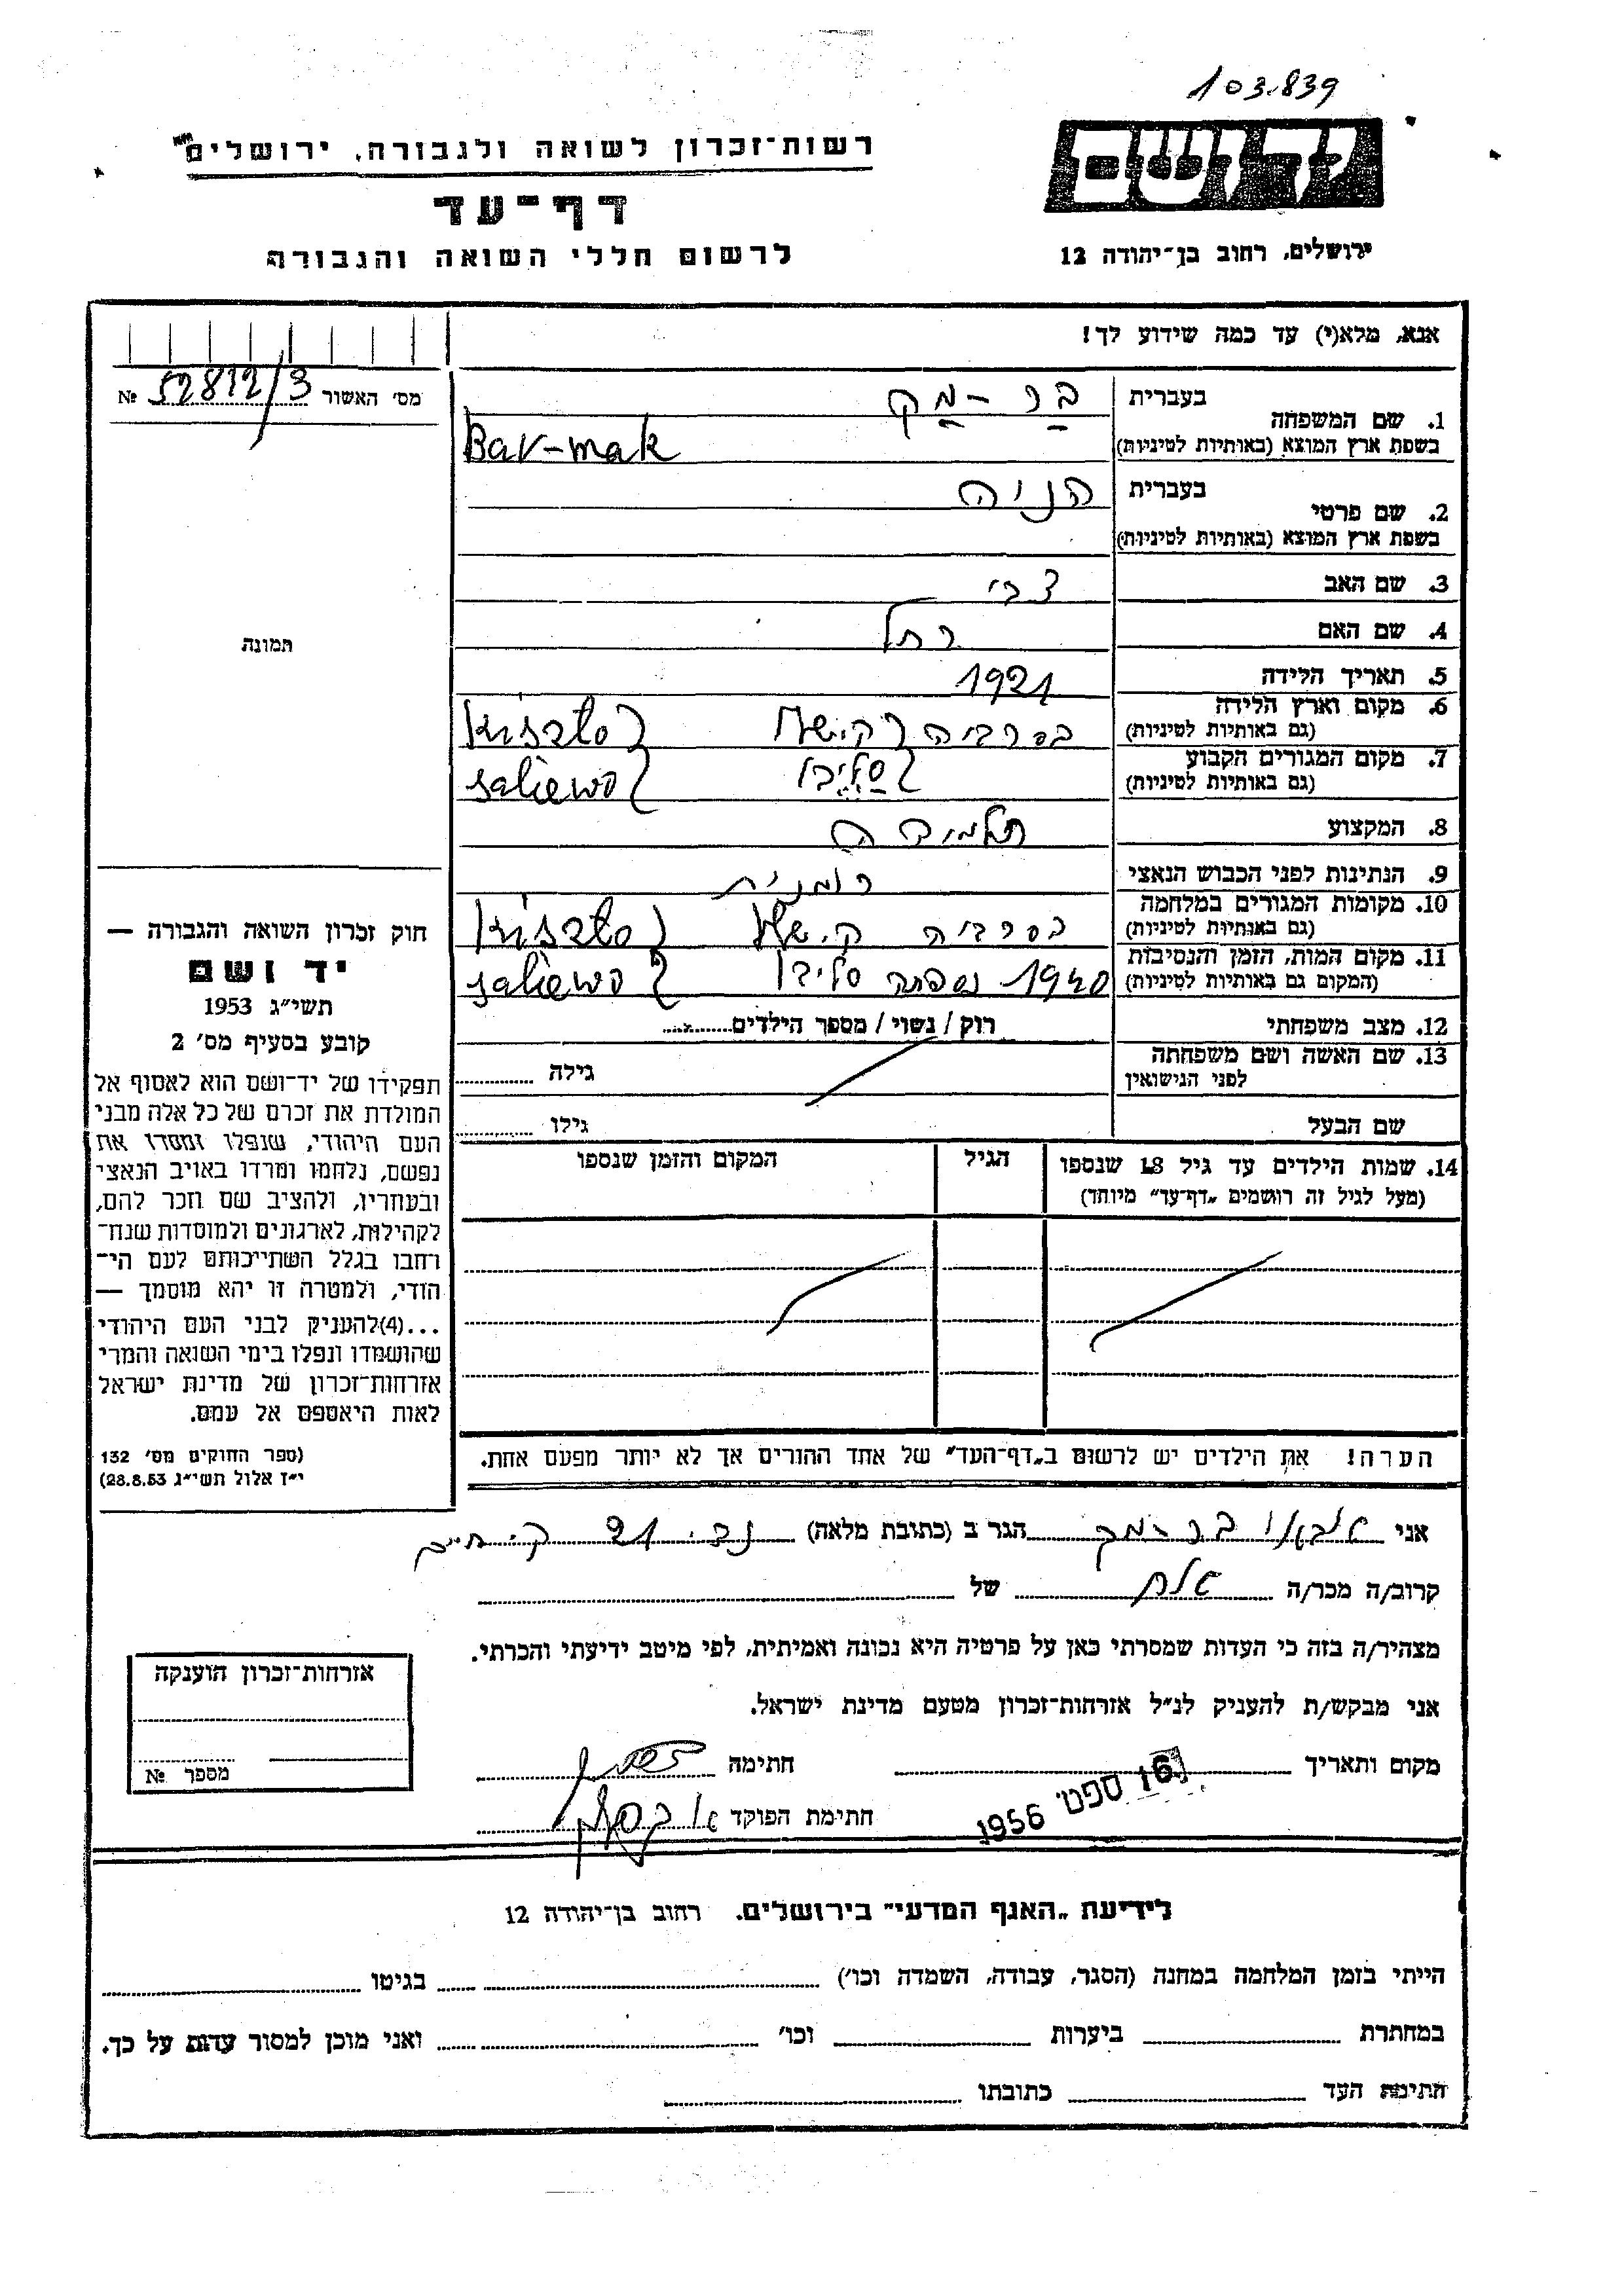 103.839
רשות־זכרון לשואה ולגבורה, ירושלים
יד ושם
דף־עד
לרשום חללי השואה והגבורה
ירושלים, רחוב בן־יהודה 12
אנא, מלא(י) עד כמה שידוע לך!
מס׳ האשור № 52812/3
1. שם המשפחה
בעברית בר-מק
בשפת ארץ המוצא (באותיות לטיניות) Bar-mak
2. שם פרטי
בעברית הניה
בשפת ארץ המוצא (באותיות לטיניות)
3. שם האב צבי
4. שם האם רחל
5. תאריך הלידה 1921
6. מקום וארץ הלידה
(גם באותיות לטיניות) בסרביה
7. מקום המגורים הקבוע
(גם באותיות לטיניות) saliewo
8. המקצוע תלמידה
9. הנתינות לפני הכבוש הנאצי רומנית
10. מקומות המגורים במלחמה
(גם באותיות לטיניות) בסרביה
11. מקום המות, הזמן והנסיבות
(המקום גם באותיות לטיניות) 1940 נספתה saliewo
12. מצב משפחתי רוק / נשוי / מספר הילדים
13. שם האשה ושם משפחתה
לפני הנישואין גילה
שם הבעל גילו
14. שמות הילדים עד גיל 18 שנספו הגיל המקום והזמן שנספו
(מעל לגיל זה רושמים „דף־עד” מיוחד)
הערה! את הילדים יש לרשום ב„דף־העד” של אחד ההורים אך לא יותר מפעם אחת.
תמונה
חוק זכרון השואה והגבורה —
יד ושם
תשי״ג 1953
קובע בסעיף מס׳ 2
תפקידו של יד־ושם הוא לאסוף אל
המולדת את זכרם של כל אלה מבני
העם היהודי, שנפלו ומסרו את
נפשם, נלחמו ומרדו באויב הנאצי
ובעוזריו, ולהציב שם וזכר להם,
לקהילות, לארגונים ולמוסדות שנח־
רחבו בגלל השתייכותם לעם הי־
הודי, ולמטרה זו יהא מוסמך —
...(4)להעניק לבני העם היהודי
שהושמדו ונפלו בימי השואה והמרי
אזרחות־זכרון של מדינת ישראל
לאות היאספם אל עמם.
(ספר החוקים מס׳ 132
י״ז אלול תשי״ג 28.8.53)
אני בר-מק הגר ב (כתובת מלאה) 21 ק. חיים
קרוב/ה מכר/ה אח של
מצהיר/ה בזה כי העדות שמסרתי כאן על פרטיה היא נכונה ואמיתית, לפי מיטב ידיעתי והכרתי.
אני מבקש/ת להעניק לנ״ל אזרחות־זכרון מטעם מדינת ישראל.
מקום ותאריך 16 ספט׳ 1956 חתימה
חתימת הפוקד
אזרחות־זכרון הוענקה
מספר №
לידיעת „האגף המדעי” בירושלים. רחוב בן־יהודה 12
הייתי בזמן המלחמה במחנה (הסגר, עבודה, השמדה וכו׳) בגיטו
במחתרת ביערות וכו׳ ואני מוכן למסור עדות על כך.
חתימת העד כתובתו